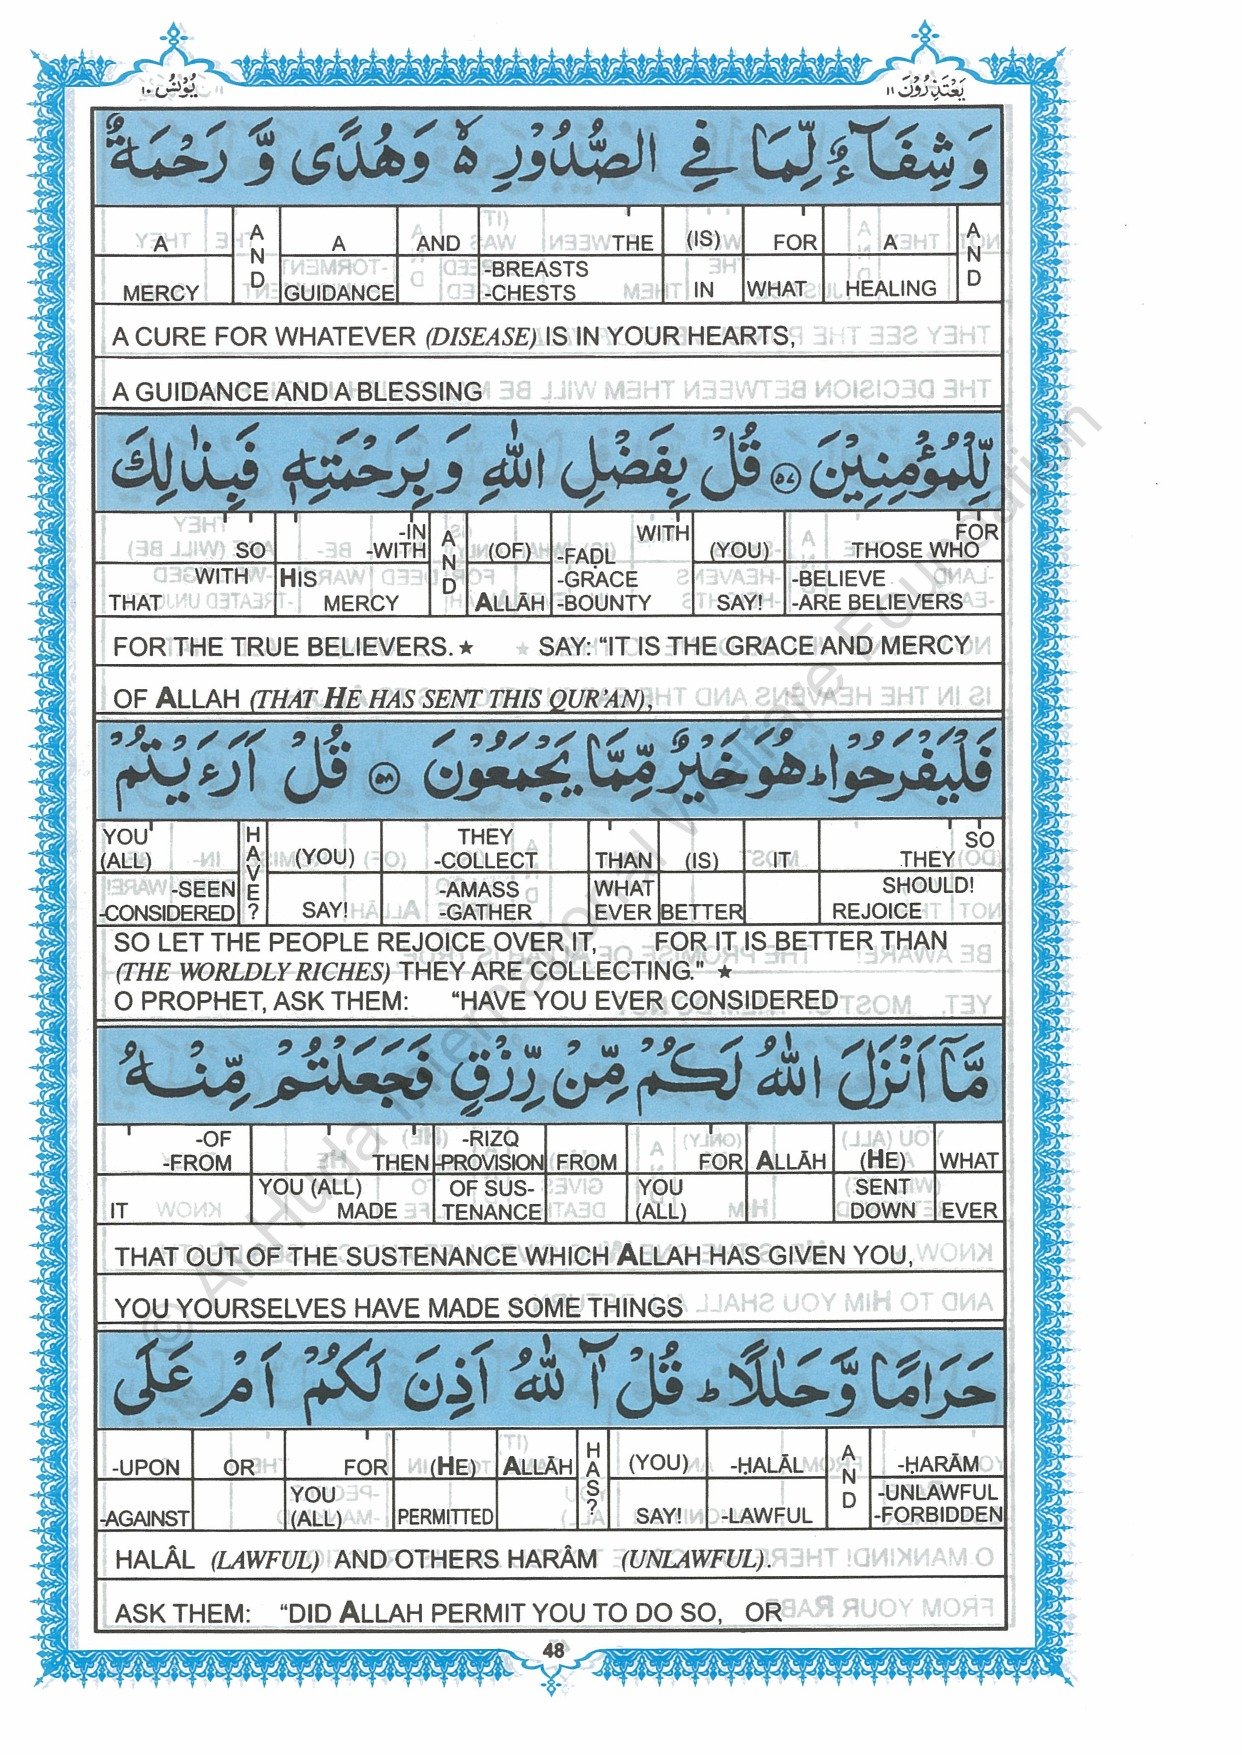 يُوْنُس ١٠
يَعْتَذِرُوْنَ ١١
وَشِفَآءٌ لِّمَا فِي الصُّدُوْرِ ۙ وَهُدًى وَّ رَحْمَةٌ
A AND A AND THE (IS) FOR A AND
MERCY GUIDANCE -BREASTS -CHESTS IN WHAT HEALING
A CURE FOR WHATEVER (DISEASE) IS IN YOUR HEARTS,
A GUIDANCE AND A BLESSING
لِّلْمُؤْمِنِيْنَ ٥٧ قُلْ بِفَضْلِ اللّٰهِ وَ بِرَحْمَتِهٖ فَبِذٰلِكَ
SO -IN -WITH AND (OF) WITH (YOU) FOR THOSE WHO
WITH THAT HIS MERCY ALLĀH -FAḌL -GRACE -BOUNTY SAY! -BELIEVE -ARE BELIEVERS
FOR THE TRUE BELIEVERS.★ SAY: “IT IS THE GRACE AND MERCY
OF ALLAH (THAT HE HAS SENT THIS QUR’AN),
فَلْيَفْرَحُوْا ؕ هُوَ خَيْرٌ مِّمَّا يَجْمَعُوْنَ ٥٨ قُلْ اَرَءَيْتُمْ
YOU (ALL) HAVE? (YOU) THEY -COLLECT THAN (IS) IT SO THEY
-SEEN -CONSIDERED SAY! -AMASS -GATHER WHAT EVER BETTER SHOULD! REJOICE
SO LET THE PEOPLE REJOICE OVER IT, FOR IT IS BETTER THAN
(THE WORLDLY RICHES) THEY ARE COLLECTING." ★
O PROPHET, ASK THEM: “HAVE YOU EVER CONSIDERED
مَّآ اَنْزَلَ اللّٰهُ لَكُمْ مِّنْ رِّزْقٍ فَجَعَلْتُمْ مِّنْهُ
-OF -FROM THEN -RIZQ -PROVISION FROM FOR ALLĀH (HE) WHAT
IT YOU (ALL) MADE OF SUS- TENANCE YOU (ALL) SENT DOWN EVER
THAT OUT OF THE SUSTENANCE WHICH ALLAH HAS GIVEN YOU,
YOU YOURSELVES HAVE MADE SOME THINGS
حَرَامًا وَّ حَلٰلًا ؕ قُلْ آٰللّٰهُ اَذِنَ لَكُمْ اَمْ عَلَى
-UPON OR FOR (HE) ALLĀH HAS? (YOU) -ḤALĀL AND -ḤARĀM
-AGAINST YOU (ALL) PERMITTED SAY! -LAWFUL -UNLAWFUL -FORBIDDEN
HALÂL (LAWFUL) AND OTHERS HARÂM (UNLAWFUL).
ASK THEM: “DID ALLAH PERMIT YOU TO DO SO, OR
48
© Al-Huda International Welfare Foundation